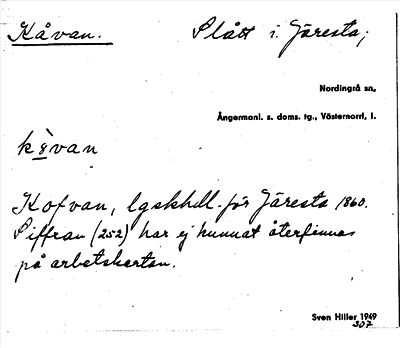 Kåvan. Slått i Järesta;
Nordingrå sn,
Ångermanl. s. doms. tg., Västernorrl, l.
kåvan
Kofvan, lgskhdl. för Järesta 1860.
Siffran (252) har ej kunnat återfinnas
på arbetskartan.
Sven Hiller 1949
307